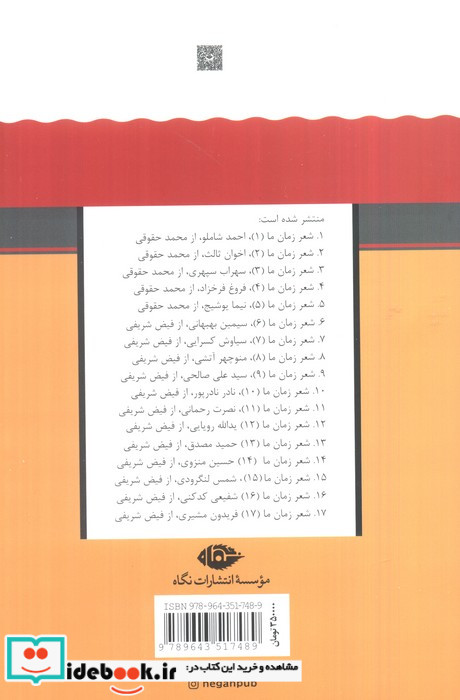 منتشر شده است:
۱. شعر زمان ما (۱)، احمد شاملو، از محمد حقوقی
۲. شعر زمان ما (۲)، اخوان ثالث، از محمد حقوقی
۳. شعر زمان ما (۳)، سهراب سپهری، از محمد حقوقی
۴. شعر زمان ما (۴)، فروغ فرخزاد، از محمد حقوقی
۵. شعر زمان ما (۵)، نیما یوشیج، از محمد حقوقی
۶. شعر زمان ما (۶)، سیمین بهبهانی، از فیض شریفی
۷. شعر زمان ما (۷)، سیاوش کسرایی، از فیض شریفی
۸. شعر زمان ما (۸)، منوچهر آتشی، از فیض شریفی
۹. شعر زمان ما (۹)، سید علی صالحی، از فیض شریفی
۱۰. شعر زمان ما (۱۰)، نادر نادرپور، از فیض شریفی
۱۱. شعر زمان ما (۱۱)، نصرت رحمانی، از فیض شریفی
۱۲. شعر زمان ما (۱۲)، یدالله رویایی، از فیض شریفی
۱۳. شعر زمان ما (۱۳) حمید مصدق، از فیض شریفی
۱۴. شعر زمان ما (۱۴) حسین منزوی، از فیض شریفی
۱۵. شعر زمان ما (۱۵)، شمس لنگرودی، از فیض شریفی
۱۶. شعر زمان ما (۱۶) شفیعی کدکنی، از فیض شریفی
۱۷. شعر زمان ما (۱۷) فریدون مشیری، از فیض شریفی
مؤسسهٔ انتشارات نگاه
ISBN 978-964-351-748-9
9 789643 517489
۳۵۰۰۰۰ تومان
مشاهده و خرید این کتاب در:
iidebook.ir
neganpub